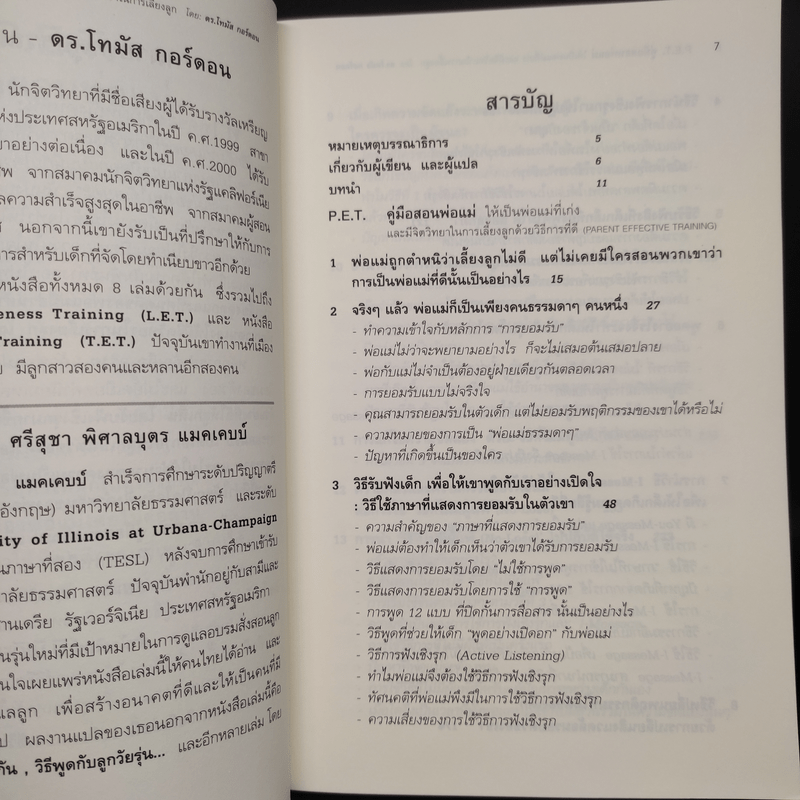 ในการเลี้ยงลูก โดย: ดร.โทมัส กอร์ดอน
น - ดร.โทมัส กอร์ดอน
นักจิตวิทยาที่มีชื่อเสียงผู้ได้รับรางวัลเหรียญ
ห่งประเทศสหรัฐอเมริกาในปี ค.ศ.1999 สาขา
อย่างต่อเนื่อง และในปี ค.ศ.2000 ได้รับ
ชีพ จากสมาคมนักจิตวิทยาแห่งรัฐแคลิฟอร์เนีย
ลความสำเร็จสูงสุดในอาชีพ จากสมาคมผู้สอน
นอกจากนี้เขายังรับเป็นที่ปรึกษาให้กับการ
การสำหรับเด็กที่จัดโดยทำเนียบขาวอีกด้วย
หนังสือทั้งหมด 8 เล่มด้วยกัน ซึ่งรวมไปถึง
eness Training (L.E.T.) และ หนังสือ
raining (T.E.T.) ปัจจุบันเขาทำงานที่เมือง
มีลูกสาวสองคนและหลานอีกสองคน
ศรีสุชา พิศาลบุตร แมคเคบบ์
แมคเคบบ์ สำเร็จการศึกษาระดับปริญญาตรี
อังกฤษ) มหาวิทยาลัยธรรมศาสตร์ และระดับ
ity of Illinois at Urbana-Champaign
นภาษาที่สอง (TESL) หลังจบการศึกษาเข้ารับ
าลัยธรรมศาสตร์ ปัจจุบันพำนักอยู่กับสามีและ
านเดรีย รัฐเวอร์จิเนีย ประเทศสหรัฐอเมริกา
นรุ่นใหม่ที่มีเป้าหมายในการดูแลอบรมสั่งสอนลูก
นใจเผยแพร่หนังสือเล่มนี้ให้คนไทยได้อ่าน และ
แลลูก เพื่อสร้างอนาคตที่ดีและให้เป็นคนที่มี
ป ผลงานแปลของเธอนอกจากหนังสือเล่มนี้คือ
กัน , วิธีพูดกับลูกวัยรุ่น... และอีกหลายเล่ม โดย
7
สารบัญ
หมายเหตุบรรณาธิการ 5
เกี่ยวกับผู้เขียน และผู้แปล 6
บทนำ 11
P.E.T. คู่มือสอนพ่อแม่ ให้เป็นพ่อแม่ที่เก่ง
และมีจิตวิทยาในการเลี้ยงลูกด้วยวิธีการที่ดี (PARENT EFFECTIVE TRAINING)
1 พ่อแม่ถูกตำหนิว่าเลี้ยงลูกไม่ดี แต่ไม่เคยมีใครสอนพวกเขาว่า
การเป็นพ่อแม่ที่ดีนั้นเป็นอย่างไร 15
2 จริงๆ แล้ว พ่อแม่ก็เป็นเพียงคนธรรมดาๆ คนหนึ่ง 27
- ทำความเข้าใจกับหลักการ "การยอมรับ"
- พ่อแม่ไม่ว่าจะพยายามอย่างไร ก็จะไม่เสมอต้นเสมอปลาย
- พ่อกับแม่ไม่จำเป็นต้องอยู่ฝ่ายเดียวกันตลอดเวลา
- การยอมรับแบบไม่จริงใจ
- คุณสามารถยอมรับในตัวเด็ก แต่ไม่ยอมรับพฤติกรรมของเขาได้หรือไม่
- ความหมายของการเป็น "พ่อแม่ธรรมดาๆ"
- ปัญหาที่เกิดขึ้นเป็นของใคร
3 วิธีรับฟังเด็ก เพื่อให้เขาพูดกับเราอย่างเปิดใจ
: วิธีใช้ภาษาที่แสดงการยอมรับในตัวเขา 48
- ความสำคัญของ "ภาษาที่แสดงการยอมรับ"
- พ่อแม่ต้องทำให้เด็กเห็นว่าตัวเขาได้รับการยอมรับ
- วิธีแสดงการยอมรับโดย "ไม่ใช้การพูด"
- วิธีแสดงการยอมรับโดยการใช้ "การพูด"
- การพูด 12 แบบ ที่ปิดกั้นการสื่อสาร นั้นเป็นอย่างไร
- วิธีพูดที่ช่วยให้เด็ก "พูดอย่างเปิดอก" กับพ่อแม่
- วิธีการฟังเชิงรุก (Active Listening)
- ทำไมพ่อแม่จึงต้องใช้วิธีการฟังเชิงรุก
- ทัศนคติที่พ่อแม่พึงมีในการใช้วิธีการฟังเชิงรุก
- ความเสี่ยงของการใช้วิธีการฟังเชิงรุก